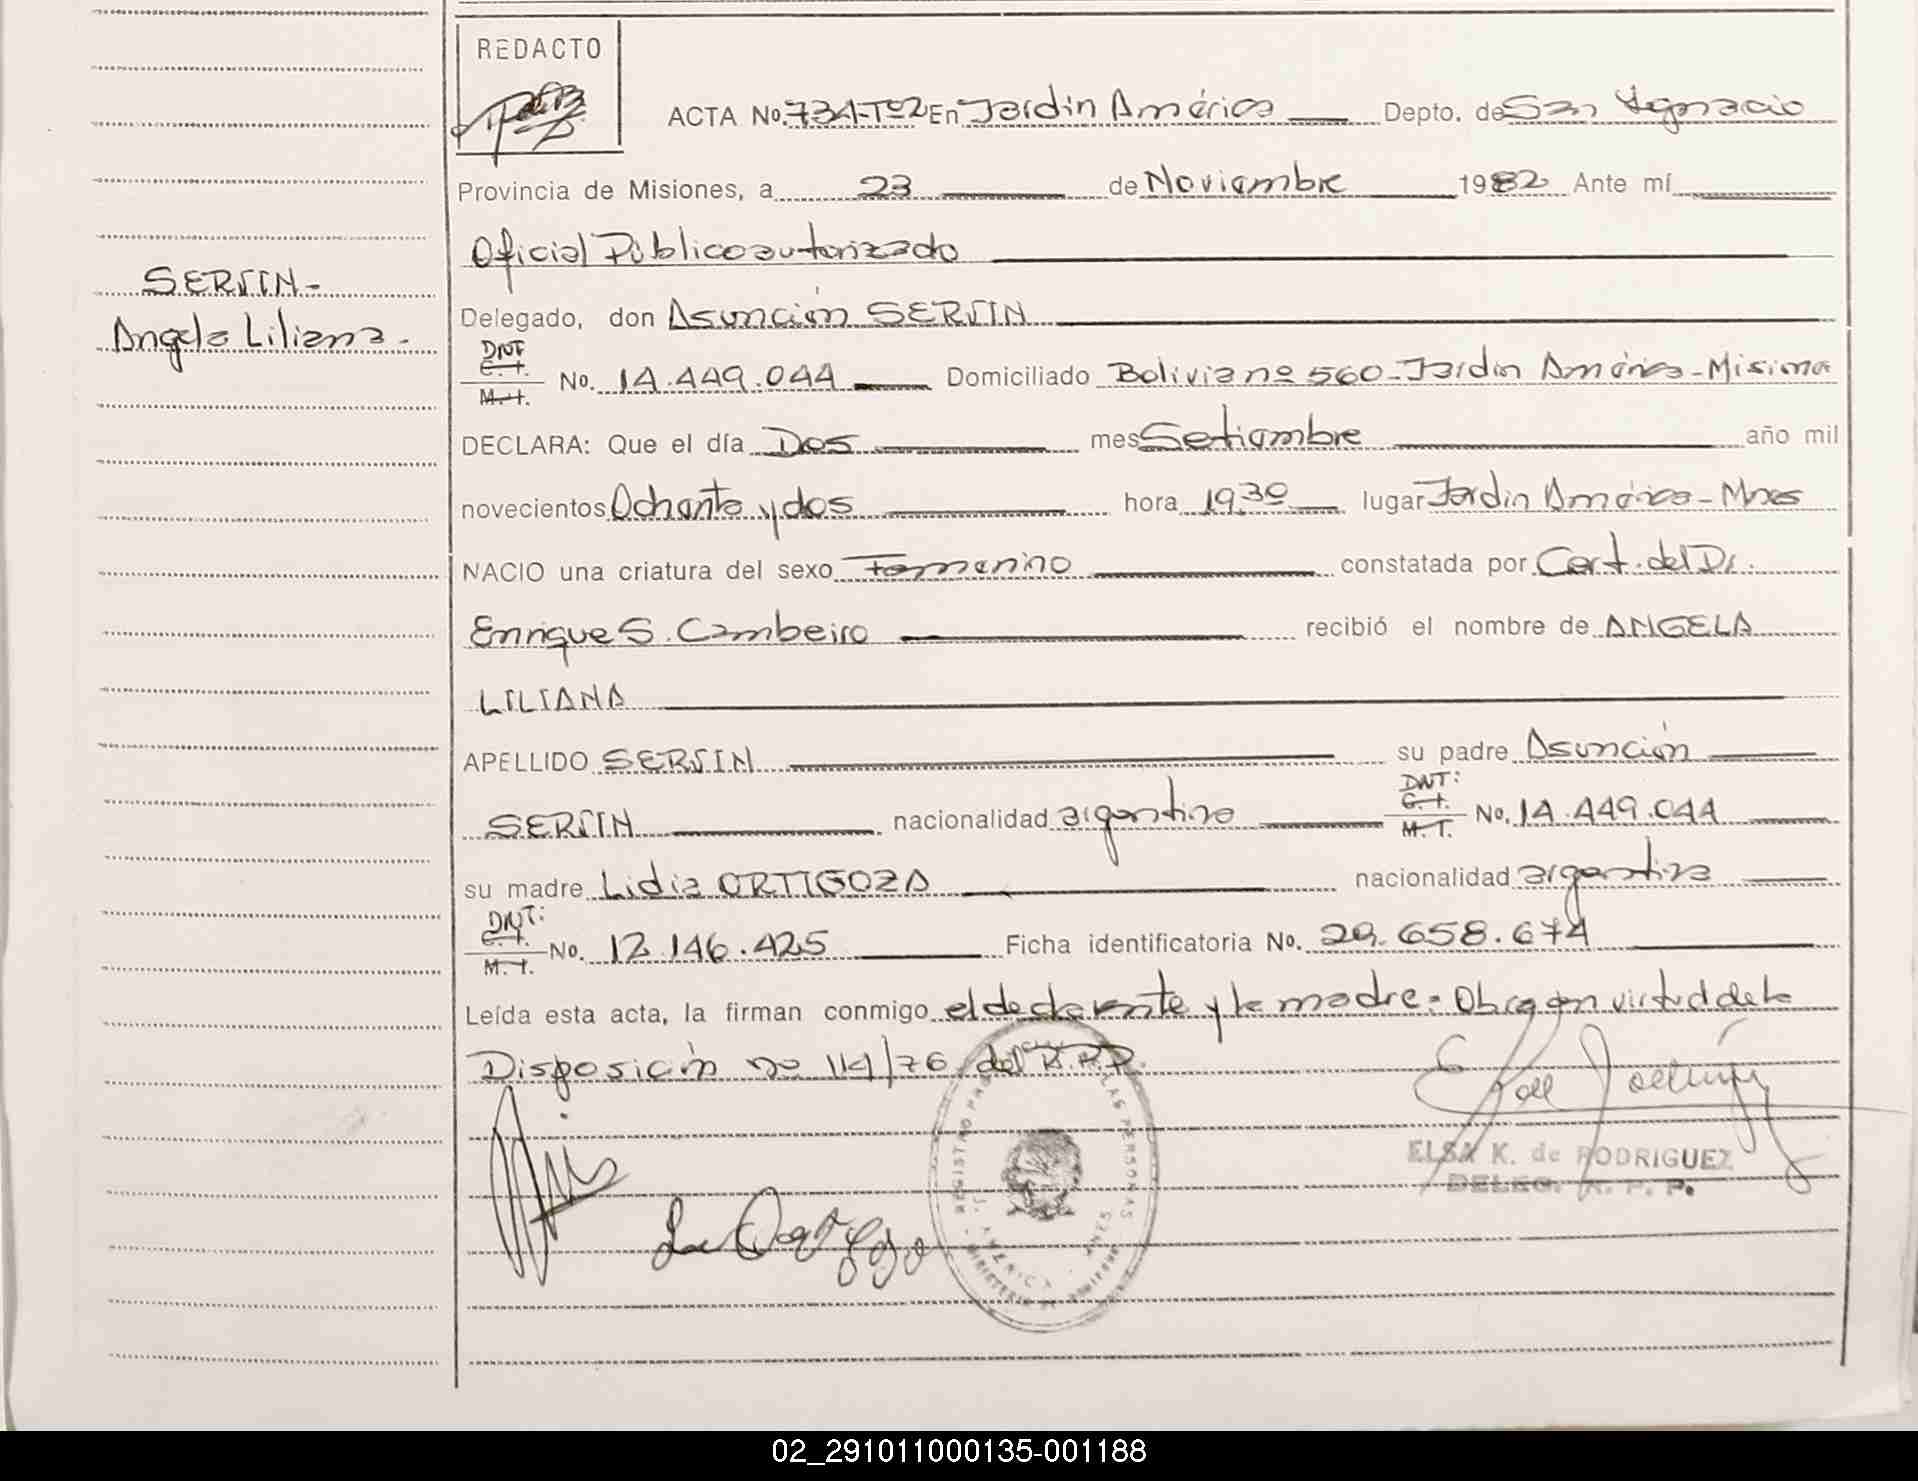 REDACTO
ACTA No. 734-Tº2 En Jardin América Depto. de San Ignacio
Provincia de Misiones, a 23 de Noviembre 1982 Ante mí
Oficial Público autorizado
SERSIN-
Angela Liliana.-
Delegado, don Asunción SERSIN
DNI
C.I.
M.I. No. 14.449.044 Domiciliado Bolivia nº 560-Jardin América-Misiones
DECLARA: Que el día Dos mes Setiembre año mil
novecientos Ochenta y dos hora 19,30 lugar Jardin América-Mnes
NACIO una criatura del sexo Femenino constatada por Cert. del Dr.
Enrique S. Cambeiro recibió el nombre de ANGELA
LILIANA
APELLIDO SERSIN su padre Asunción
SERSIN nacionalidad argentino DNI: C.I. M.I. No. 14.449.044
su madre Lidia ORTIGOZA nacionalidad argentina
DNI:
C.I.
M.I. No. 12.146.425 Ficha identificatoria No. 29.658.674
Leída esta acta, la firman conmigo el declarante y la madre. Obra en virtud de la
Disposición nº 114/76 del R.P.P.
REGISTRO LAS PERSONAS
J. AMERICA
MINISTERIO DE
ELSA K. de RODRIGUEZ
DELEG. R. P. P.
02_291011000135-001188